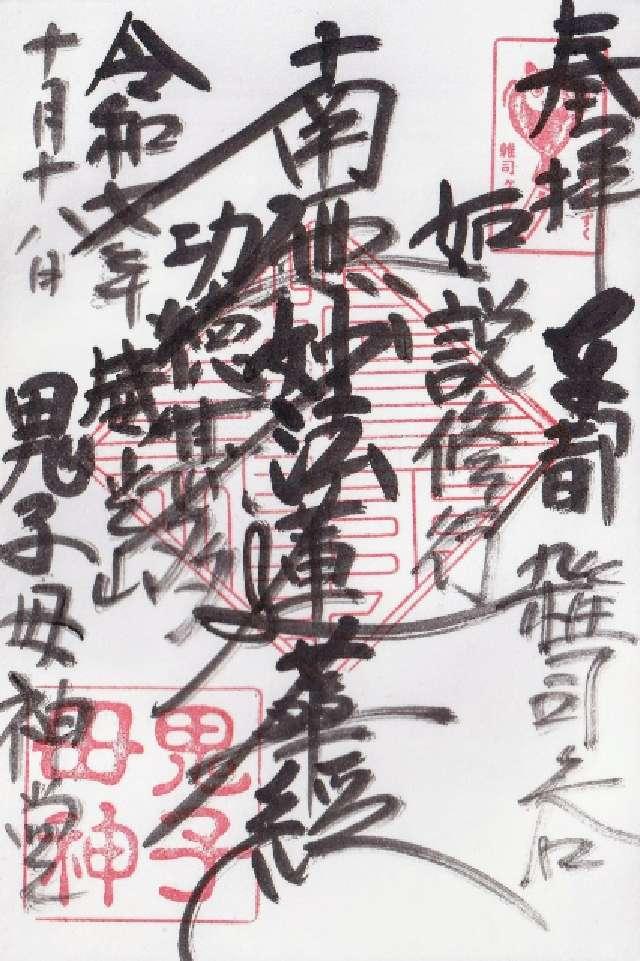 奉拝
東都 雑司谷
如説修行
南無妙法蓮華経
功徳甚多
威光山
令和六年
十月十八日
鬼子母神堂
雑司
鬼子
母神